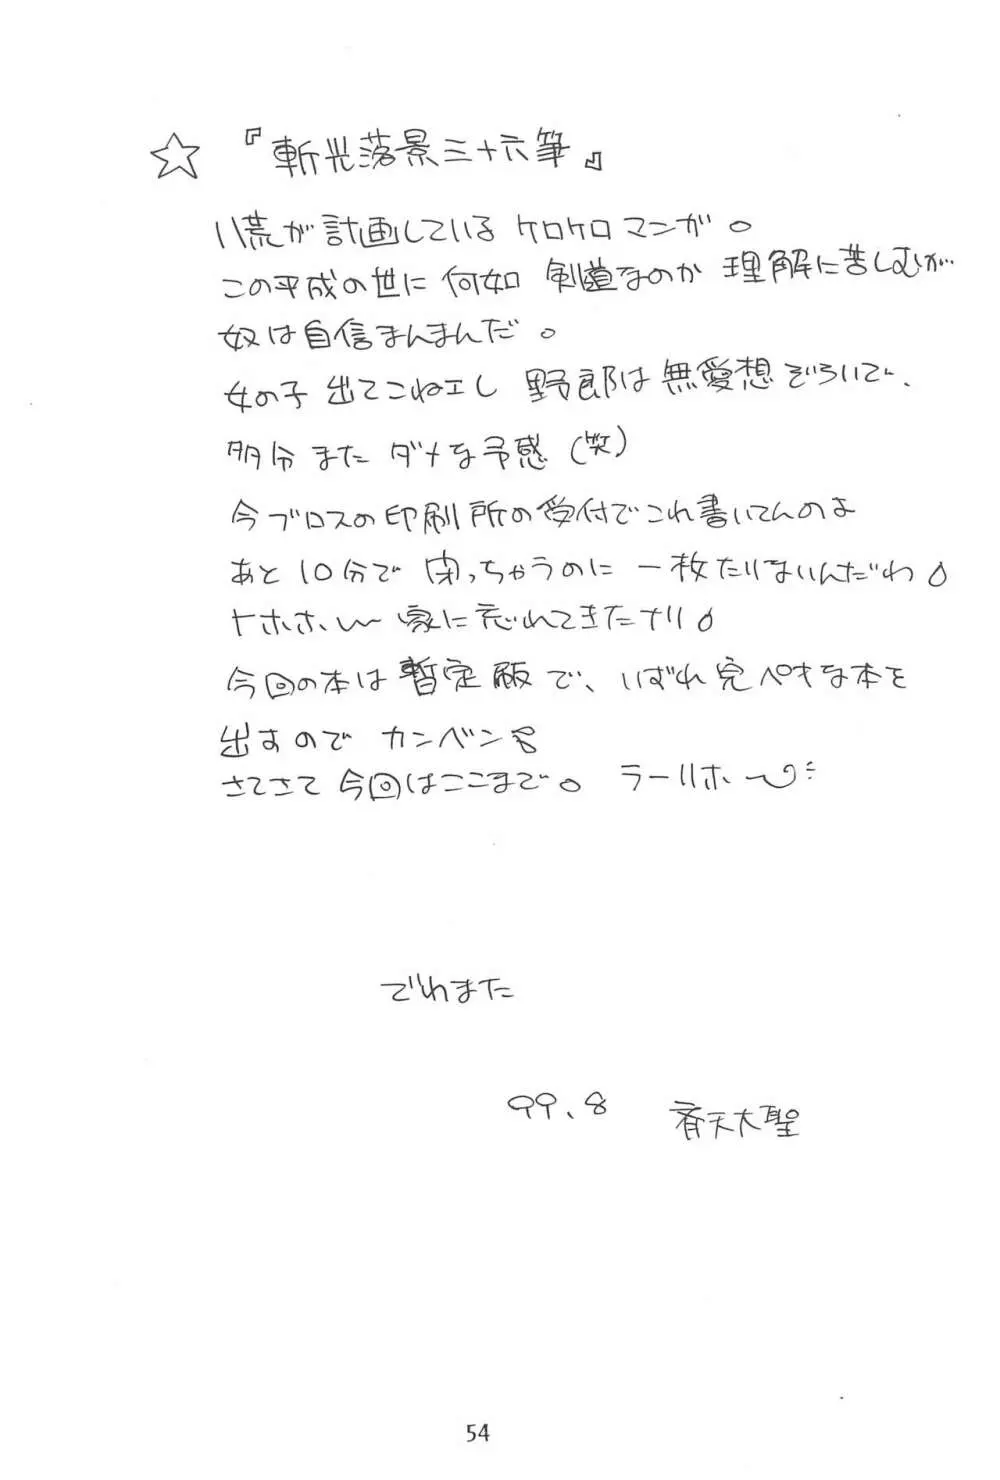 ☆ 『斬光落景三十六筆』
八荒が計画している ケロケロマンガ。
この平成の世に 何如 剣道なのか 理解に苦しむが…
奴は自信まんまんだ。
女の子 出てこねェし 野郎は無愛想ぞろいで、
多分 また ダメな予感 (笑)
今ブロスの印刷所の受付でこれ書いてんのよ
あと10分で 閉っちゃうのに 一枚たりないんだわ
トホホ、〜 家に忘れてきたナリ
今回の本は 暫定版で、いずれ完ペキな本を
出すので カンベン
さてさて 今回はここまで。 ラーリホー
でわまた
99、8 斉天大聖
54